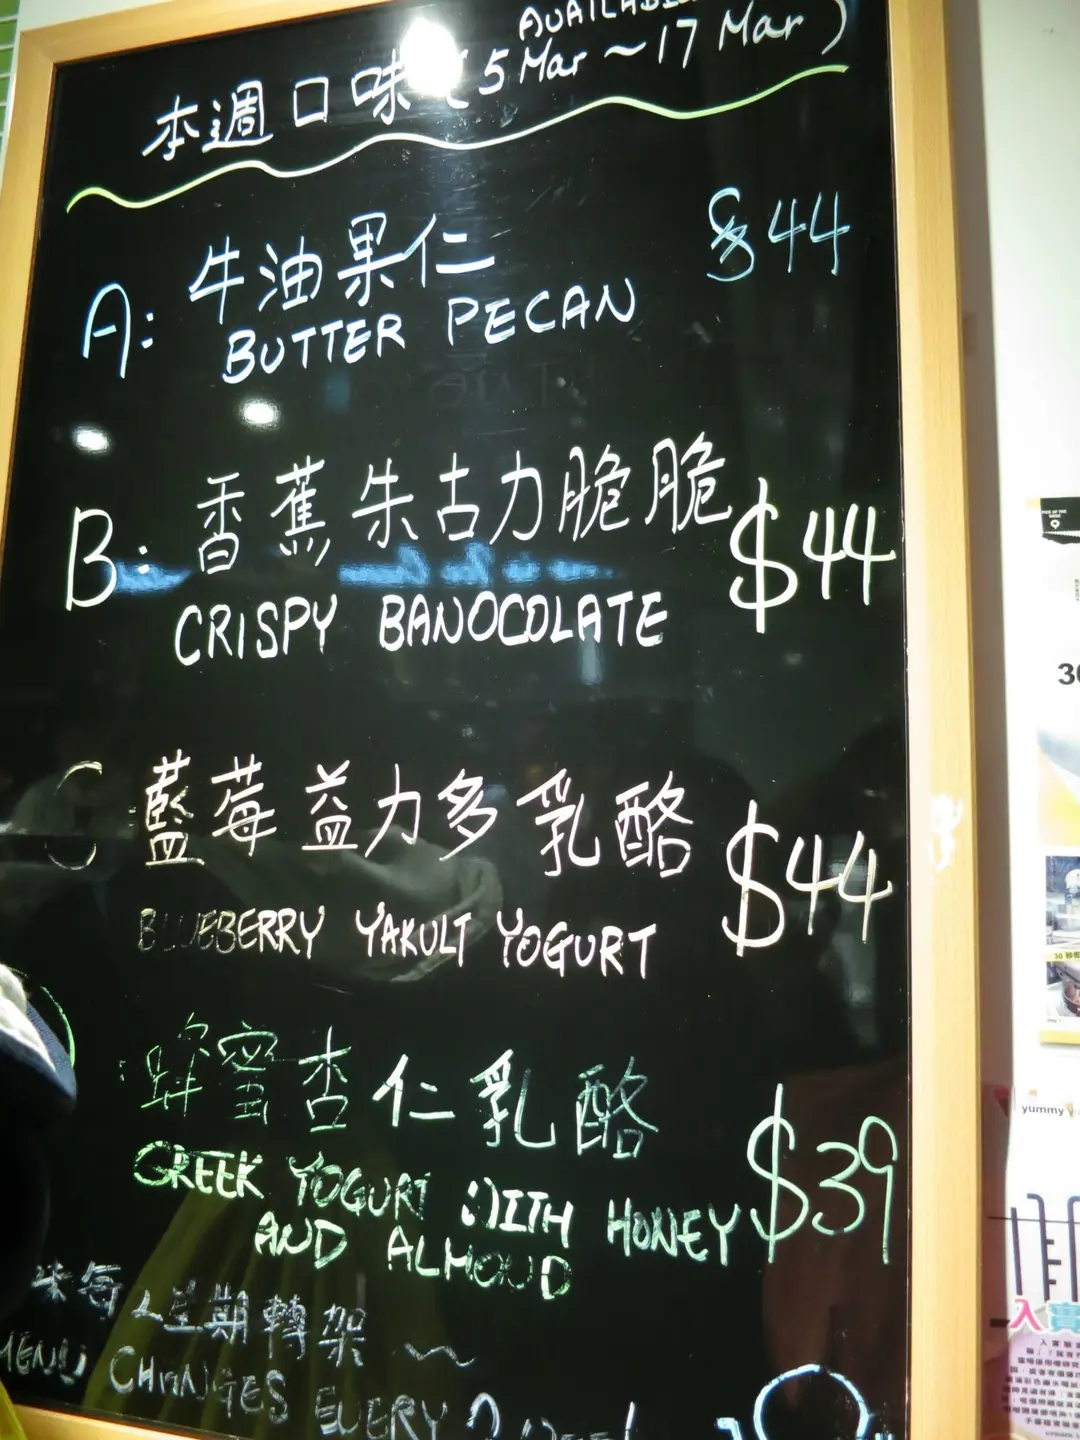 AVAILABLE
本週口味 (5 Mar ~ 17 Mar)
A: 牛油果仁 $44
BUTTER PECAN
B: 香蕉朱古力脆脆 $44
CRISPY BANOCOLATE
C 藍莓益力多乳酪 $44
BLUEBERRY YAKULT YOGURT
: 蜂蜜杏仁乳酪 $39
GREEK YOGURT WITH HONEY
AND ALMOND
星期轉架 ~
MENU CHANGES EVERY 2
30
30 秒
yummy
入實